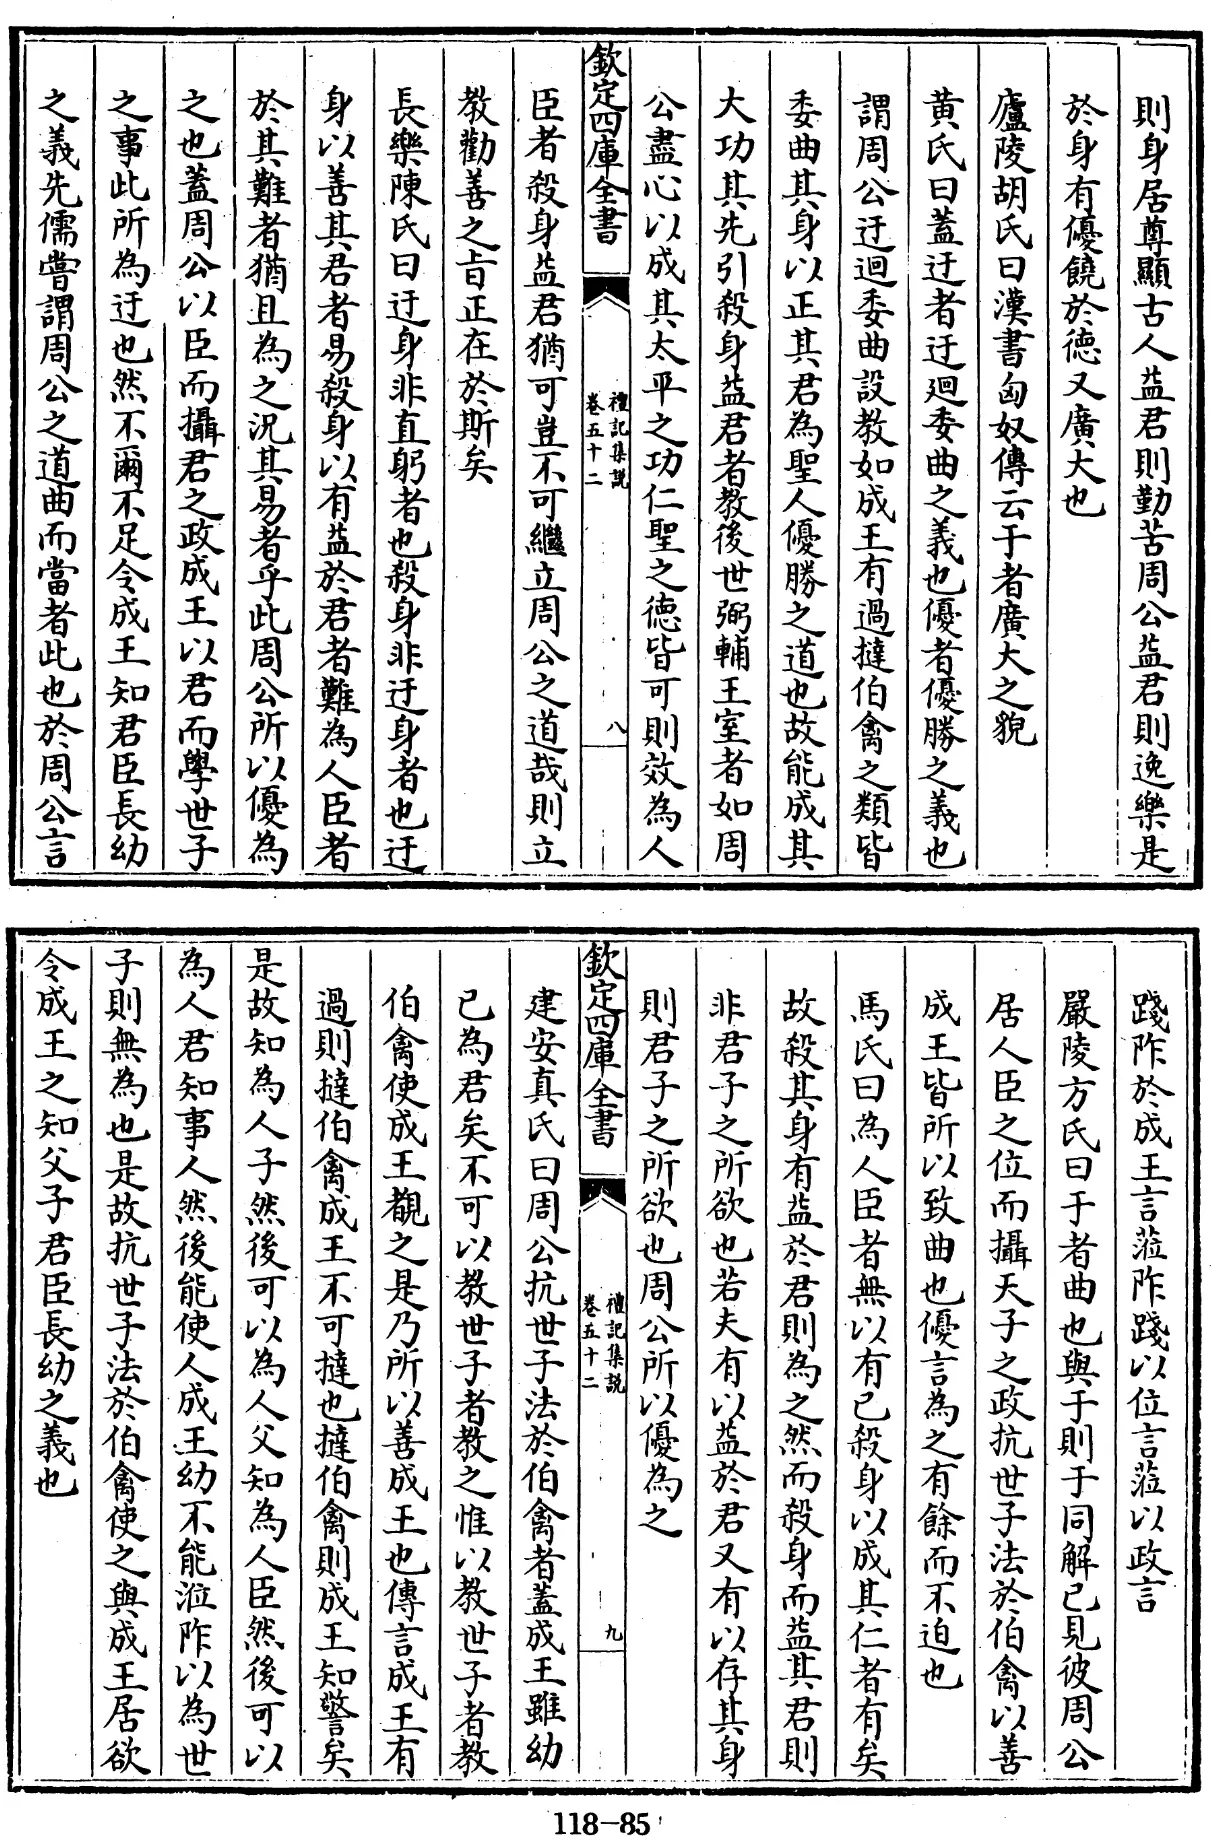 則身居尊顯古人益君則勤苦周公益君則逸樂是
於身有優饒於德又廣大也
廬陵胡氏曰漢書匈奴傳云于者廣大之貌
黄氏曰蓋迂者迂迴委曲之義也優者優勝之義也
謂周公迂迴委曲設教如成王有過撻伯禽之類皆
委曲其身以正其君為聖人優勝之道也故能成其
大功其先引殺身益君者教後世弼輔王室者如周
公盡心以成其太平之功仁聖之德皆可則效為人
欽定四庫全書
禮記集說
卷五十二
八
臣者殺身益君猶可豈不可繼立周公之道哉則立
教勸善之旨正在於斯矣
長樂陳氏曰迂身非直躬者也殺身非迂身者也迂
身以善其君者易殺身以有益於君者難為人臣者
於其難者猶且為之況其易者乎此周公所以優為
之也蓋周公以臣而攝君之政成王以君而學世子
之事此所為迂也然不爾不足令成王知君臣長幼
之義先儒嘗謂周公之道曲而當者此也於周公言
踐阼於成王言蒞阼踐以位言蒞以政言
嚴陵方氏曰于者曲也與于則于同解已見彼周公
居人臣之位而攝天子之政抗世子法於伯禽以善
成王皆所以致曲也優言為之有餘而不迫也
馬氏曰為人臣者無以有已殺身以成其仁者有矣
故殺其身有益於君則為之然而殺身而益其君則
非君子之所欲也若夫有以益於君又有以存其身
則君子之所欲也周公所以優為之
欽定四庫全書
禮記集說
卷五十二
九
建安真氏曰周公抗世子法於伯禽者蓋成王雖幼
已為君矣不可以教世子者教之惟以教世子者教
伯禽使成王觀之是乃所以善成王也傳言成王有
過則撻伯禽成王不可撻也撻伯禽則成王知警矣
是故知為人子然後可以為人父知為人臣然後可以
為人君知事人然後能使人成王幼不能涖阼以為世
子則無為也是故抗世子法於伯禽使之與成王居欲
令成王之知父子君臣長幼之義也
118-85